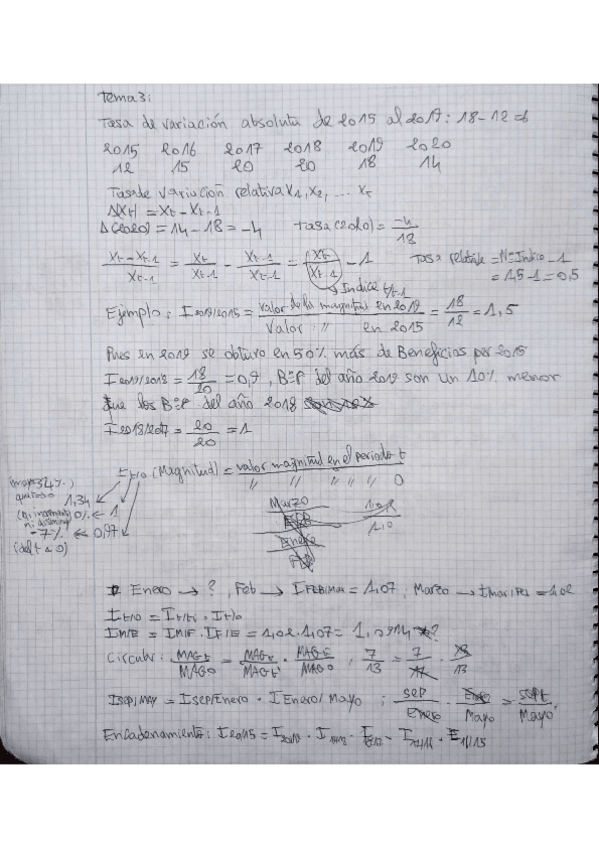 Tema 3:
Tasa de variación absoluta de 2015 al 2019: 18-12=6
2015 2016 2017 2018 2019 2020
12 15 20 20 18 14
Tasa de variación relativa X1, X2, ... Xt
Δ(Xt) = Xt - Xt-1
Δ(2020) = 14 - 18 = -4 tasa(2020) = -4/18
Xt - Xt-1 / Xt-1 = Xt / Xt-1 - Xt-1 / Xt-1 = Xt / Xt-1 - 1 Tasa relativa = Nº Indice - 1
= 1,5 - 1 = 0,5
Indice t/t-1
Ejemplo: I2019/2015 = valor de la magnitud en 2019 / Valor " en 2015 = 18/12 = 1,5
Pues en 2019 se obtuvo en 50% más de Beneficios per 2015
I2019/2018 = 18/20 = 0,9, Bº del año 2019 son un 10% menor
que los Bº del año 2018
I2018/2017 = 20/20 = 1
It/0 (Magnitud) = valor magnitud en el periodo t
" " " " " 0
34%
1,34
0% ← 1
-7% ← 0,97
Marzo
Enero
Enero → ?, Feb → = 1,07, Marzo → = 1,02
It/0 = It/t' · It'/0
IM/E = IM/F · IF/E = 1,02 · 1,07 = 1,0914
Circular: MAGt / MAG0 = MAGt / MAGt' · MAGt' / MAG0, 7/13 = 7/
ISEP/MAY = Isep/Enero · I Enero/Mayo; sep / Enero · Ene / Mayo = sept / Mayo
Encadenamiento: